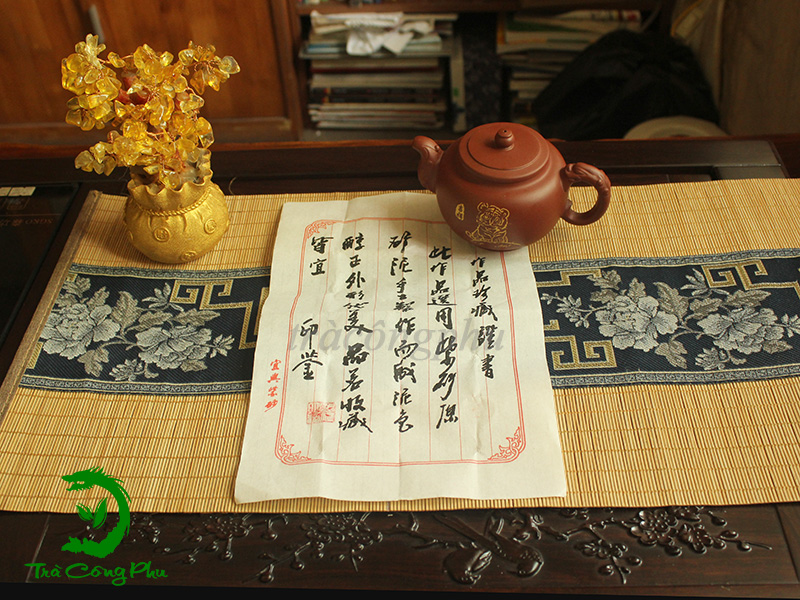 作品珍藏證書
此作品選用紫砂原
矿泥手工製作而成泥色
醇正外形优美品茗收藏
皆宜
印
宜興紫砂
tràcôngphu
Trà Công Phu